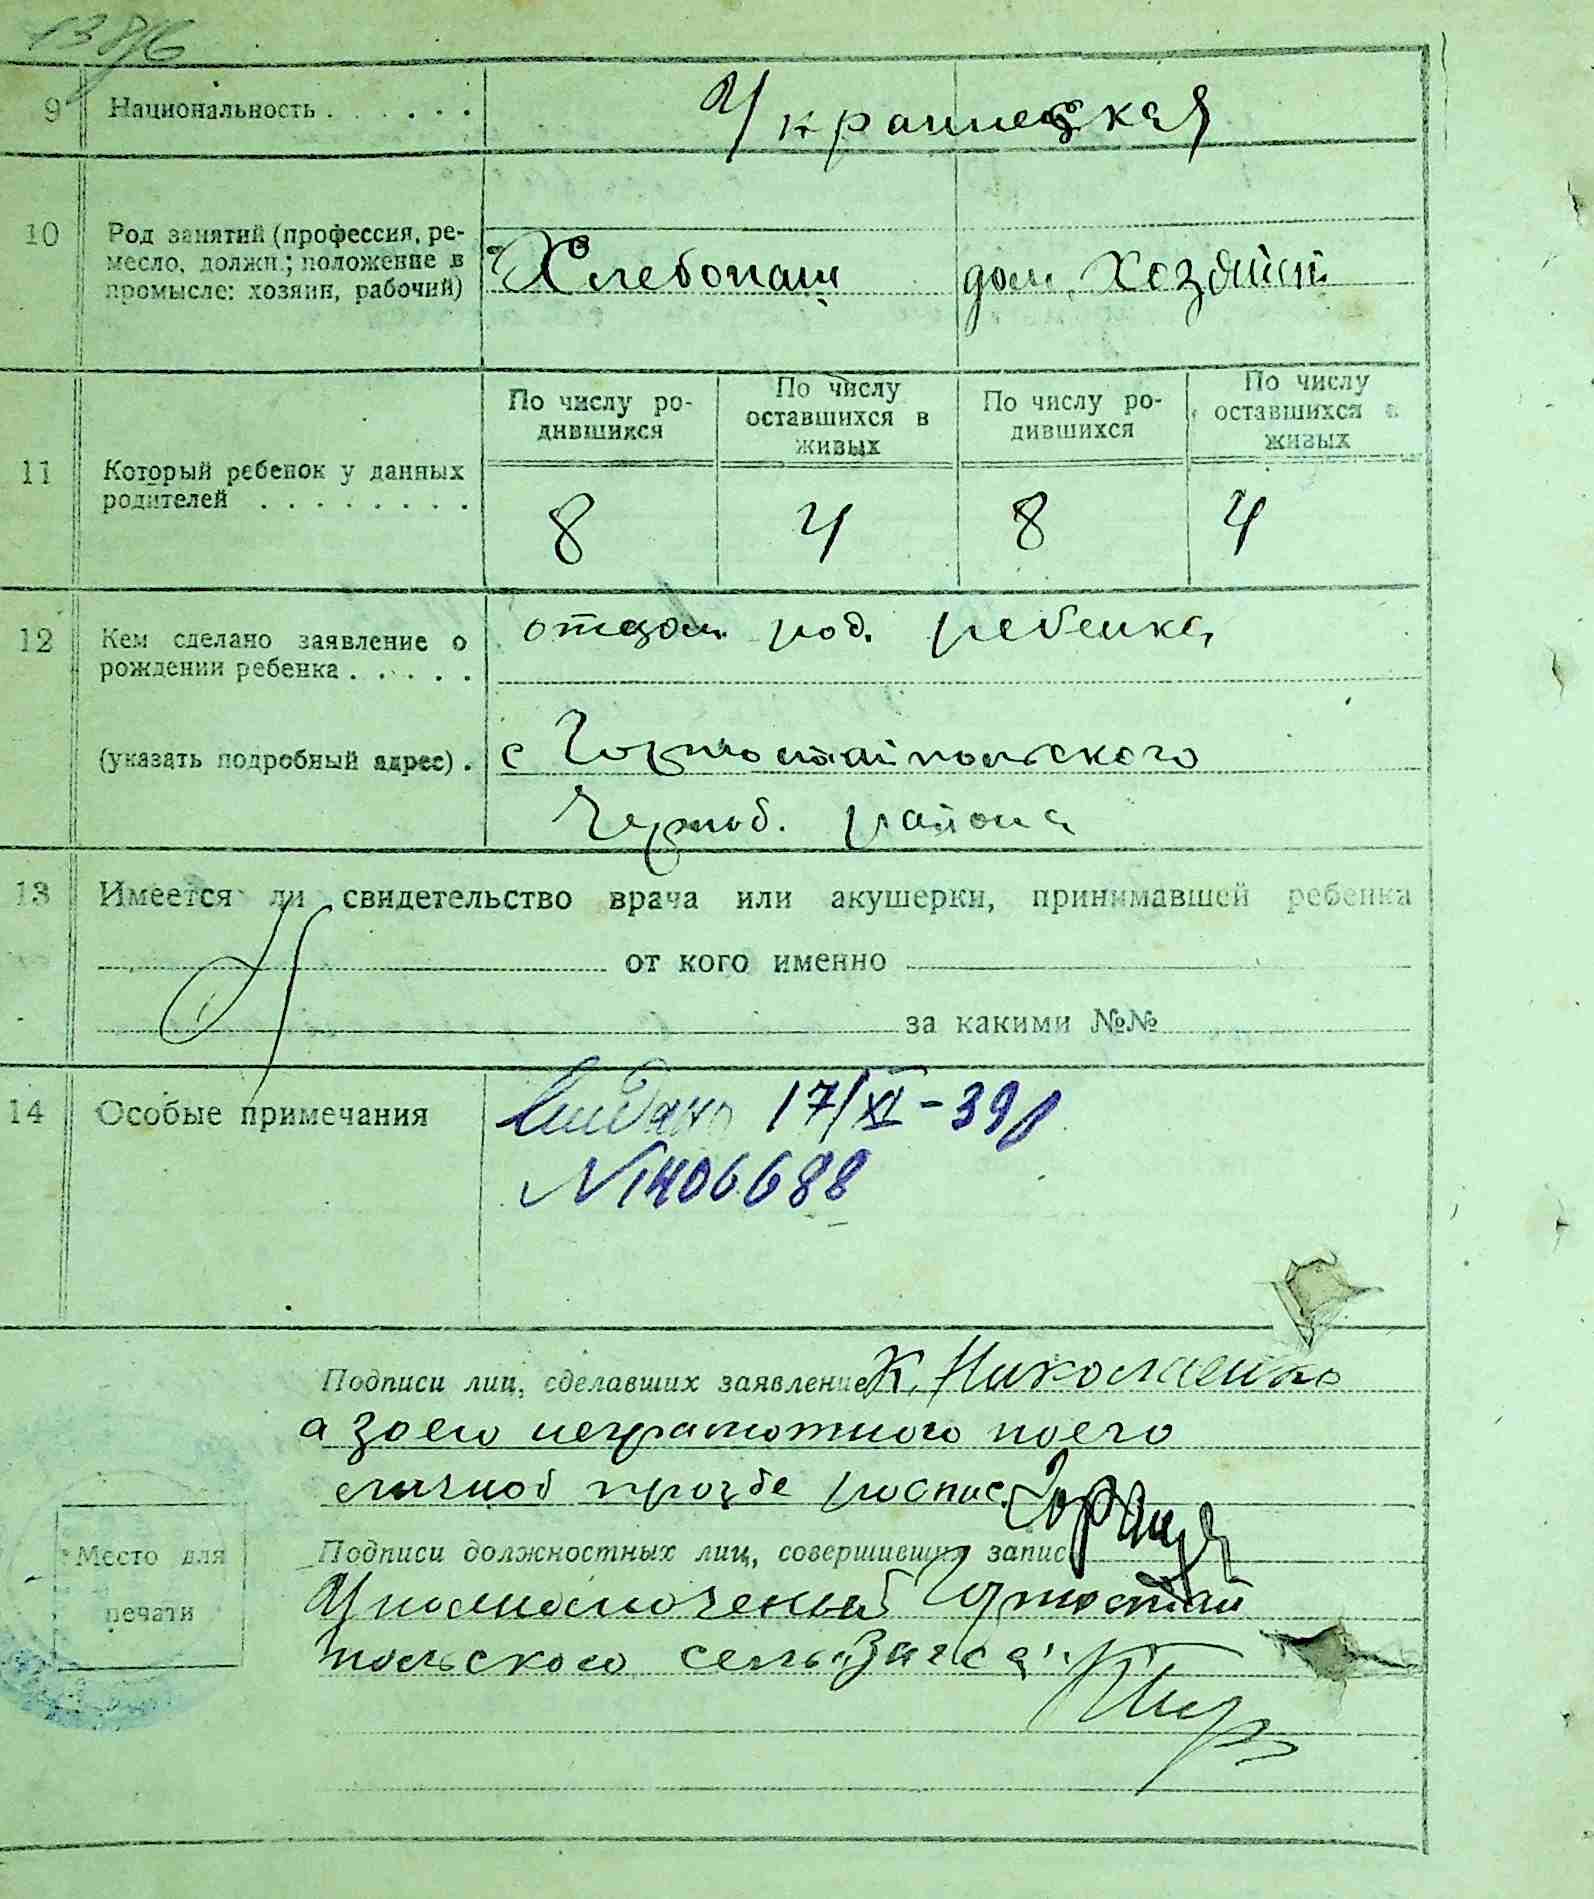 9 Национальность . . . . . .
Украинецкая
10 Род занятий (профессия, ре-
месло, должн.; положение в
промысле: хозяин, рабочий)
Хлебопаш дом. Хозяйни
По числу ро-
дившихся
По числу
оставшихся в
живых
По числу ро-
дившихся
По числу
оставшихся в
живых
11 Который ребенок у данных
родителей . . . . . . . .
8 4 8 4
12 Кем сделано заявление о
рождении ребенка . . . . .
отцом род. ребенка
(указать подробный адрес) .
с Горностайпольского
Черноб. района
13 Имеется ли свидетельство врача или акушерки, принимавшей ребенка
от кого именно
за какими №№
14 Особые примечания
Видано 17/XI-39р
N1406688
Подписи лиц, сделавших заявление К. Николаенко
а за его неграмотного по его
личной прозбе роспис.
Подписи должностных лиц, совершивших запис
Уполномоченый Горностай
польского сельЗагса
Место для
печати